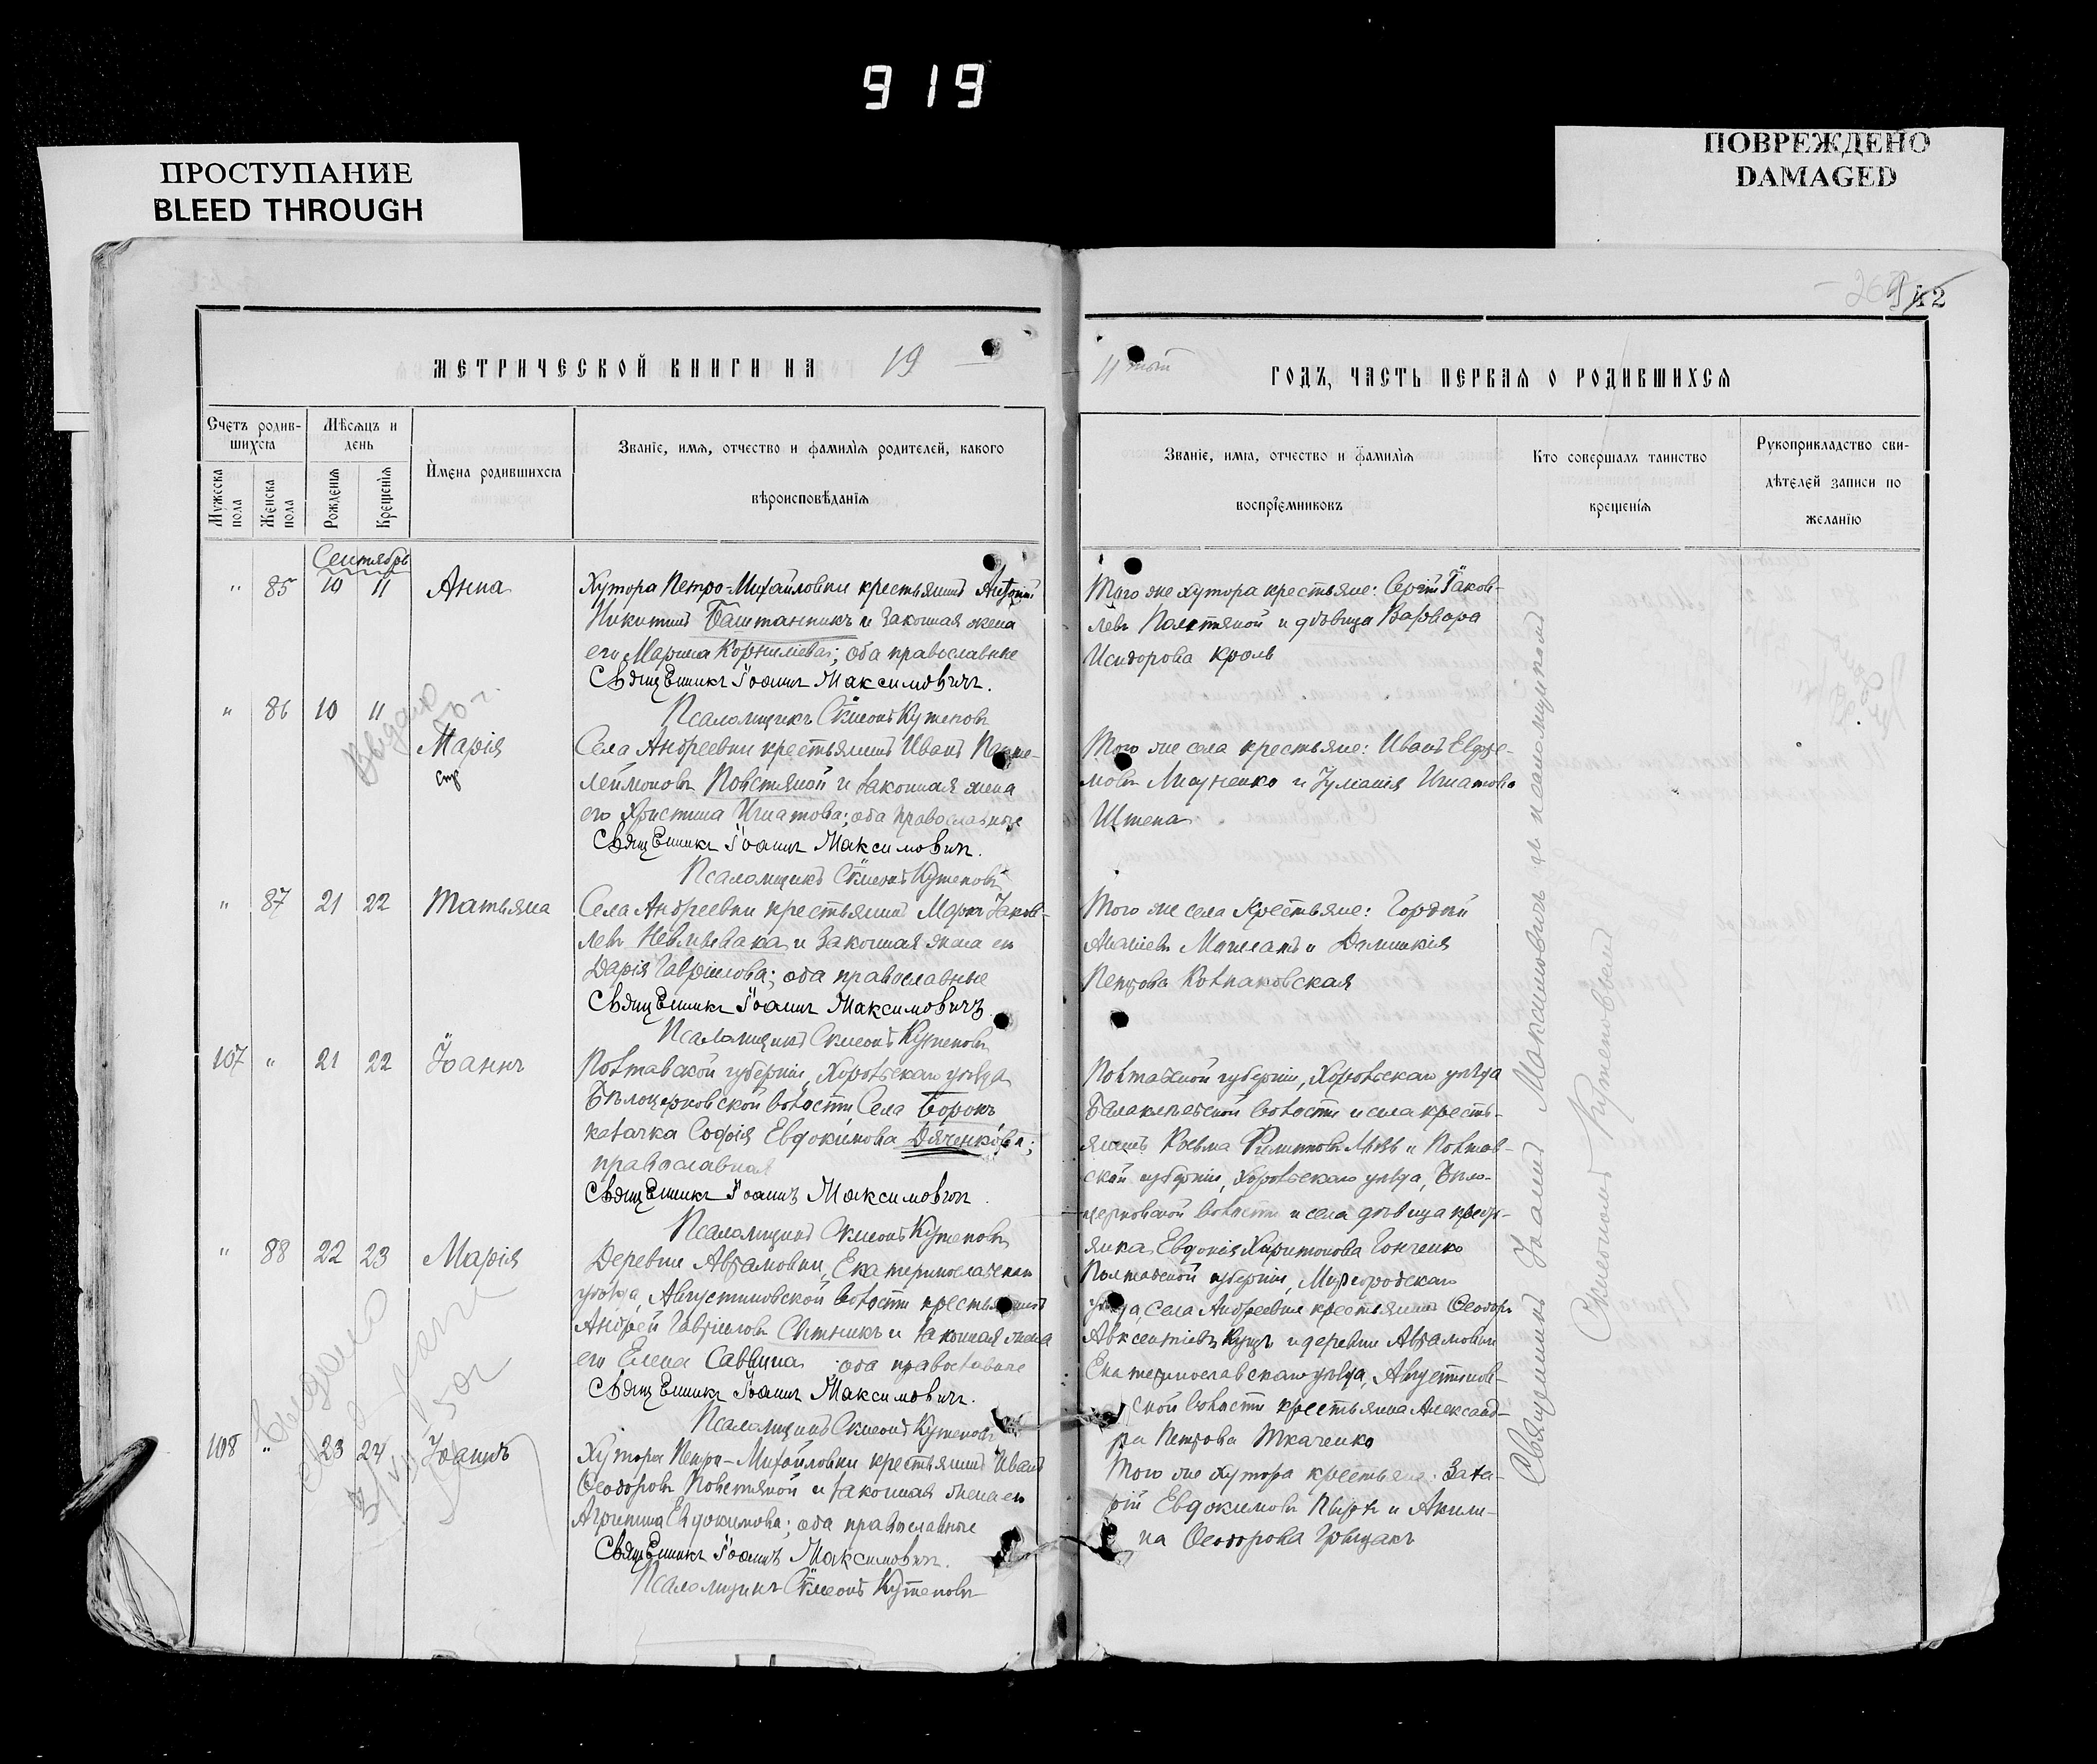 919
ПРОСТУПАНИЕ
BLEED THROUGH
ПОВРЕЖДЕНО
DAMAGED
МЕТРИЧЕСКОЙ КНИГИ НА 19
11 ГОДЪ, ЧАСТЬ ПЕРВАЯ О РОДИВШИХСЯ
Счетъ родив-
шихся
Мѣсяцъ и
день
Мужеска
пола
Женска
пола
Рожденія
Крещенія
Имена родившихся
Званіе, имя, отчество и фамилія родителей, какого
вѣроисповѣданія
Званіе, имя, отчество и фамилія
воспріемниковъ
Кто совершалъ таинство
крещенія
Рукоприкладство сви-
дѣтелей записи по
желанію
Сентябрь
" 85 10 11 Анна
Хутора Петро-Михайловки крестьянинъ
Никитинъ Баштанникъ и законная жена
его Марина Корниліева; оба православные
Священникъ Іоаннъ Максимовичъ.
Псаломщикъ Симеонъ Кутеповъ
Того же хутора крестьяне: Сергій Іаков-
левъ и дѣвица Варвара
Исидорова Кроль
" 86 10 11
Выдано
Марія
Села Андреевки крестьянинъ Иванъ Панте-
леймоновъ Повстяной и законная жена
его Христина Игнатова; оба православные
Священникъ Іоаннъ Максимовичъ.
Псаломщикъ Симеонъ Кутеповъ
Того же села крестьяне: Иванъ
и Іуліанія Игнатова
" 87 21 22 Татьяна
Села Андреевки крестьянинъ Маркъ Іаков-
левъ и законная жена его
Дарія Гавріилова; оба православные
Священникъ Іоаннъ Максимовичъ.
Псаломщикъ Симеонъ Кутеповъ
Того же села крестьяне: Гордій
и
Петрова Колпаковская
107 " 21 22 Іоаннъ
Полтавской губерніи, Хорольскаго уѣзда
Бѣлоцерковской волости Села Борокъ
казачка Софія Евдокимова Дяченкова;
православная
Священникъ Іоаннъ Максимовичъ.
Псаломщикъ Симеонъ Кутеповъ
Полтавской губерніи, Хорольскаго уѣзда
волости и села кресть-
янинъ Козьма Филипповъ и Полтав-
ской губерніи, Хорольскаго уѣзда, Бѣло-
церковской волости и села дѣвица крест-
янка Евдокія Харитонова Гонченко
" 88 22 23 Марія
Деревни Аврамовки, Екатеринославскаго
уѣзда, Августиновской волости крестьянинъ
Андрей Гавріиловъ Сытникъ и законная жена
его Елена Саввина оба православные
Священникъ Іоаннъ Максимовичъ.
Псаломщикъ Симеонъ Кутеповъ
Полтавской губерніи, Миргородскаго
уѣзда, села Андреевки крестьянинъ Ѳеодоръ
Авксентіевъ и деревни Аврамовки
Екатеринославскаго уѣзда, Августинов-
ской волости крестьянка Александ-
ра Петрова Ткаченко
Выдано
108 " 23 24 Іоаннъ
Хутора Петро-Михайловки крестьянинъ Иванъ
Ѳеодоровъ Повстяной и законная жена его
Агрипина Евдокимова; оба православные
Священникъ Іоаннъ Максимовичъ.
Псаломщикъ Симеонъ Кутеповъ
Того же хутора крестьяне: Заха-
рій Евдокимовъ и Акили-
на Ѳеодорова Грищакъ
Священникъ Іоаннъ Максимовичъ и псаломщикомъ
Симеономъ Кутеповымъ